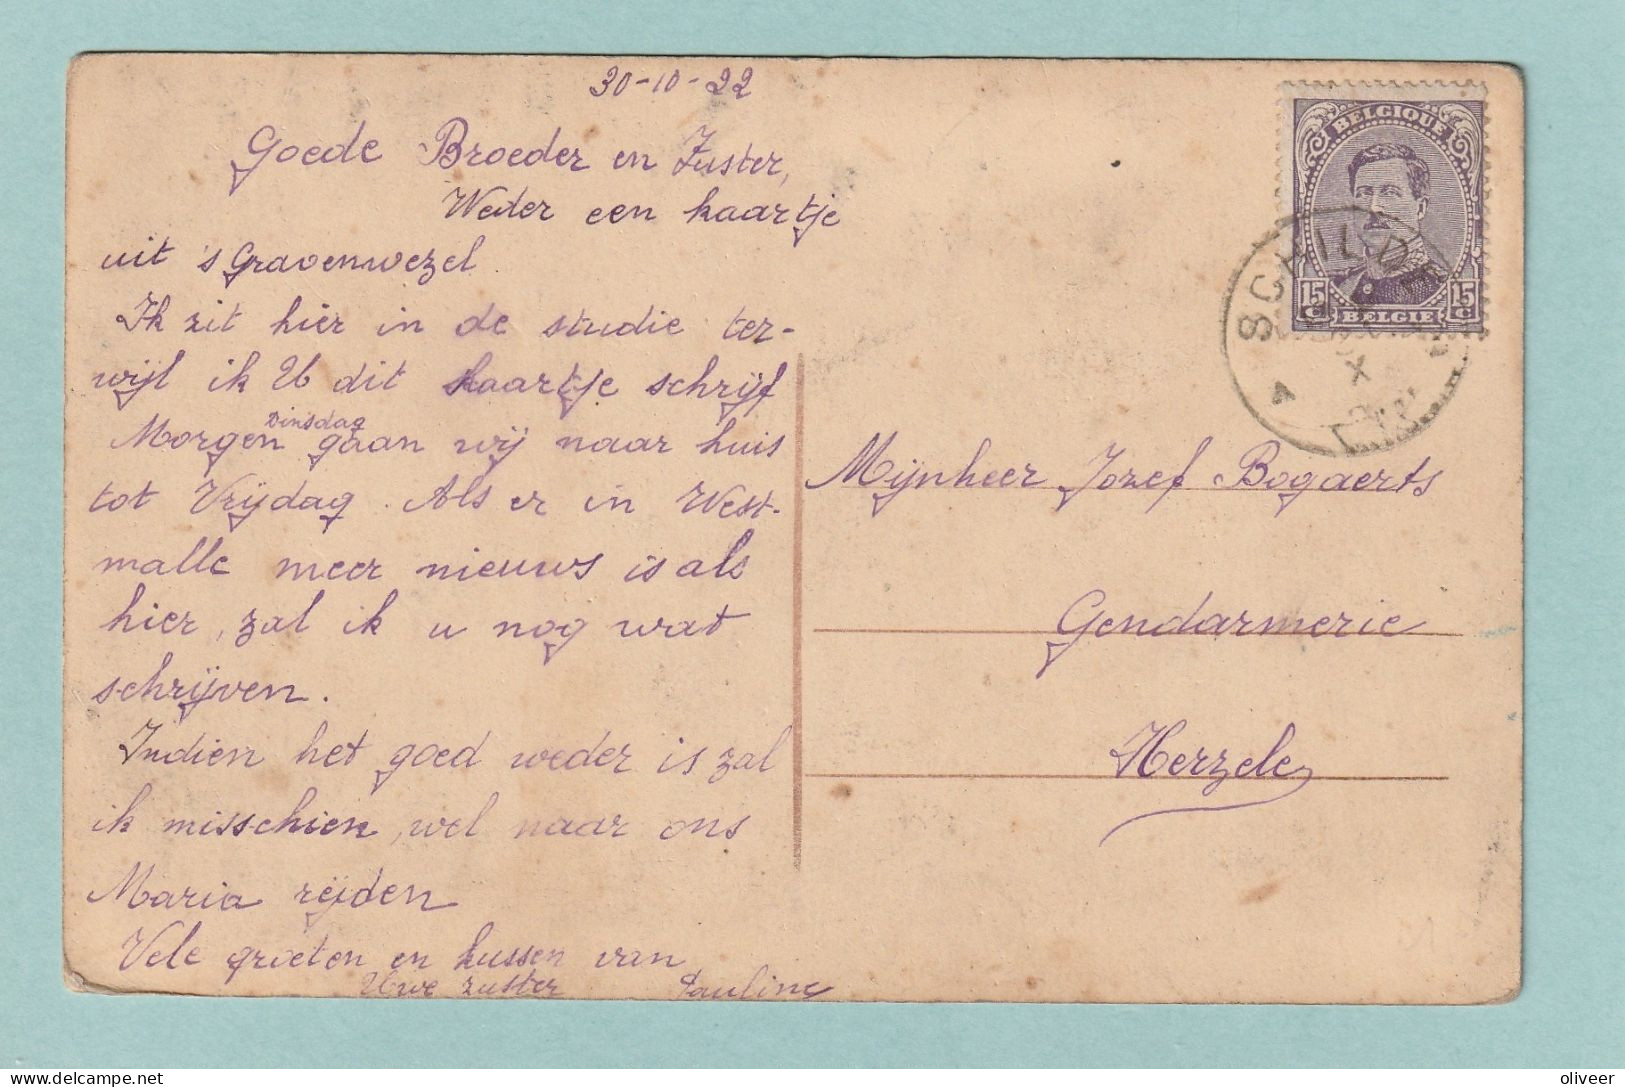 30-10-22
Goede Broeder en Zuster,
Weder een kaartje
uit 's Gravenwezel.
Ik zit hier in de studie ter-
wijl ik U dit kaartje schrijf
Dinsdag
Morgen gaan wij naar huis
tot Vrijdag. Als er in West-
malle meer nieuws is als
hier, zal ik u nog wat
schrijven.
Indien het goed weder is zal
ik misschien, wel naar ons
Maria rijden
Vele groeten en kussen van
Uwe zuster Pauline
BELGIQUE
15 C 15 C
BELGIE
SCHILDE
X
Mijnheer Jozef Bogaerts
Gendarmerie
Herzele
oliveer